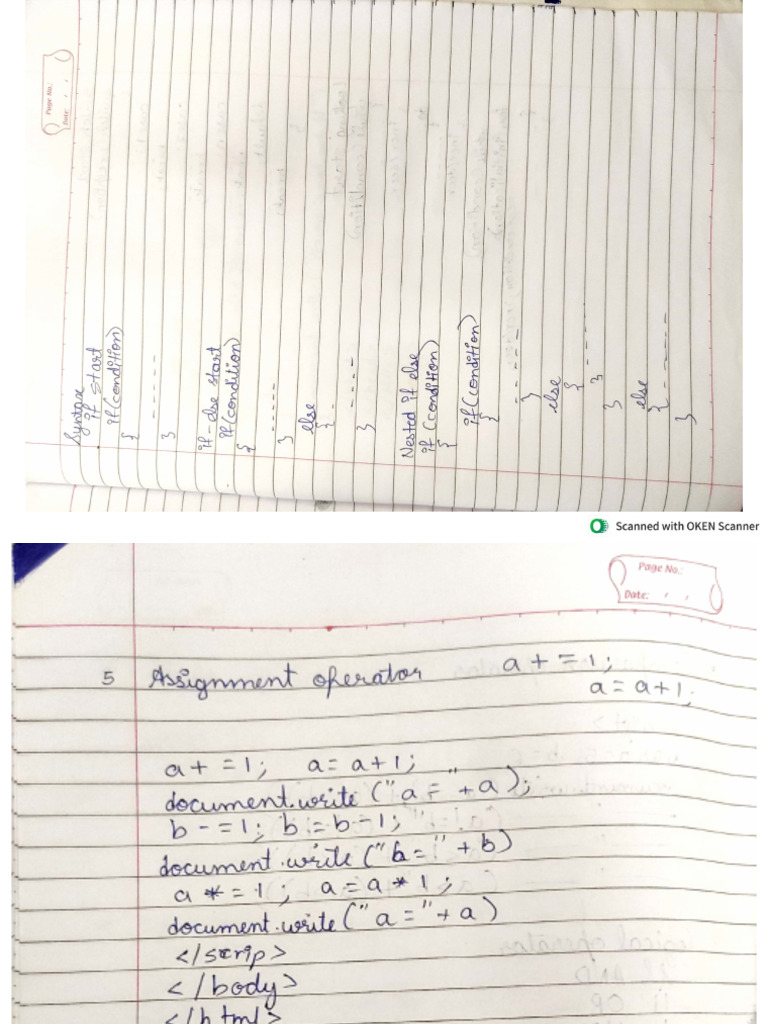 Page No.:
Date: , ,
Syntax
if start
if(condition)
{
- - - - -
}
if-else start
if(condition)
{
- - - - -
}
else
{ -
- - - -
}
Nested if else
if (condition)
{
if(condition)
{
- - - - - -
}
else
{
- - - - -
}
}
else
{ - - - - -
}
Scanned with OKEN Scanner
Page No.:
Date: , ,
5 Assignment operator a+=1;
a=a+1;
a+=1; a=a+1;
document.write("a="+a);
b-=1; b=b-1;
document.write("b="+b)
a*=1; a=a*1;
document.write("a="+a)
</scrip>
</body>
</html>